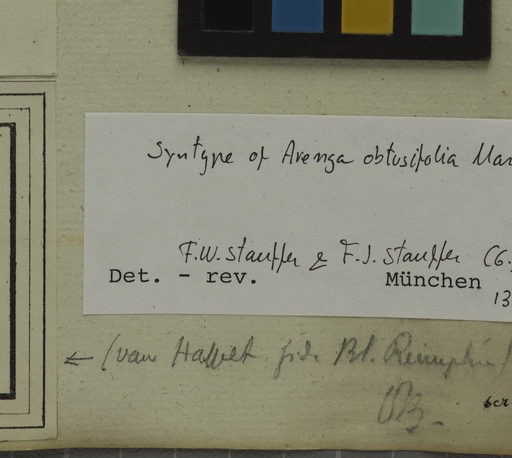 Syntype of Arenga obtusifolia Mar
F.W. Stauffer & F.J. Stauffer (G.
Det. - rev. München
13
← (van Hasselt fide Bl. Rumphia)
scr